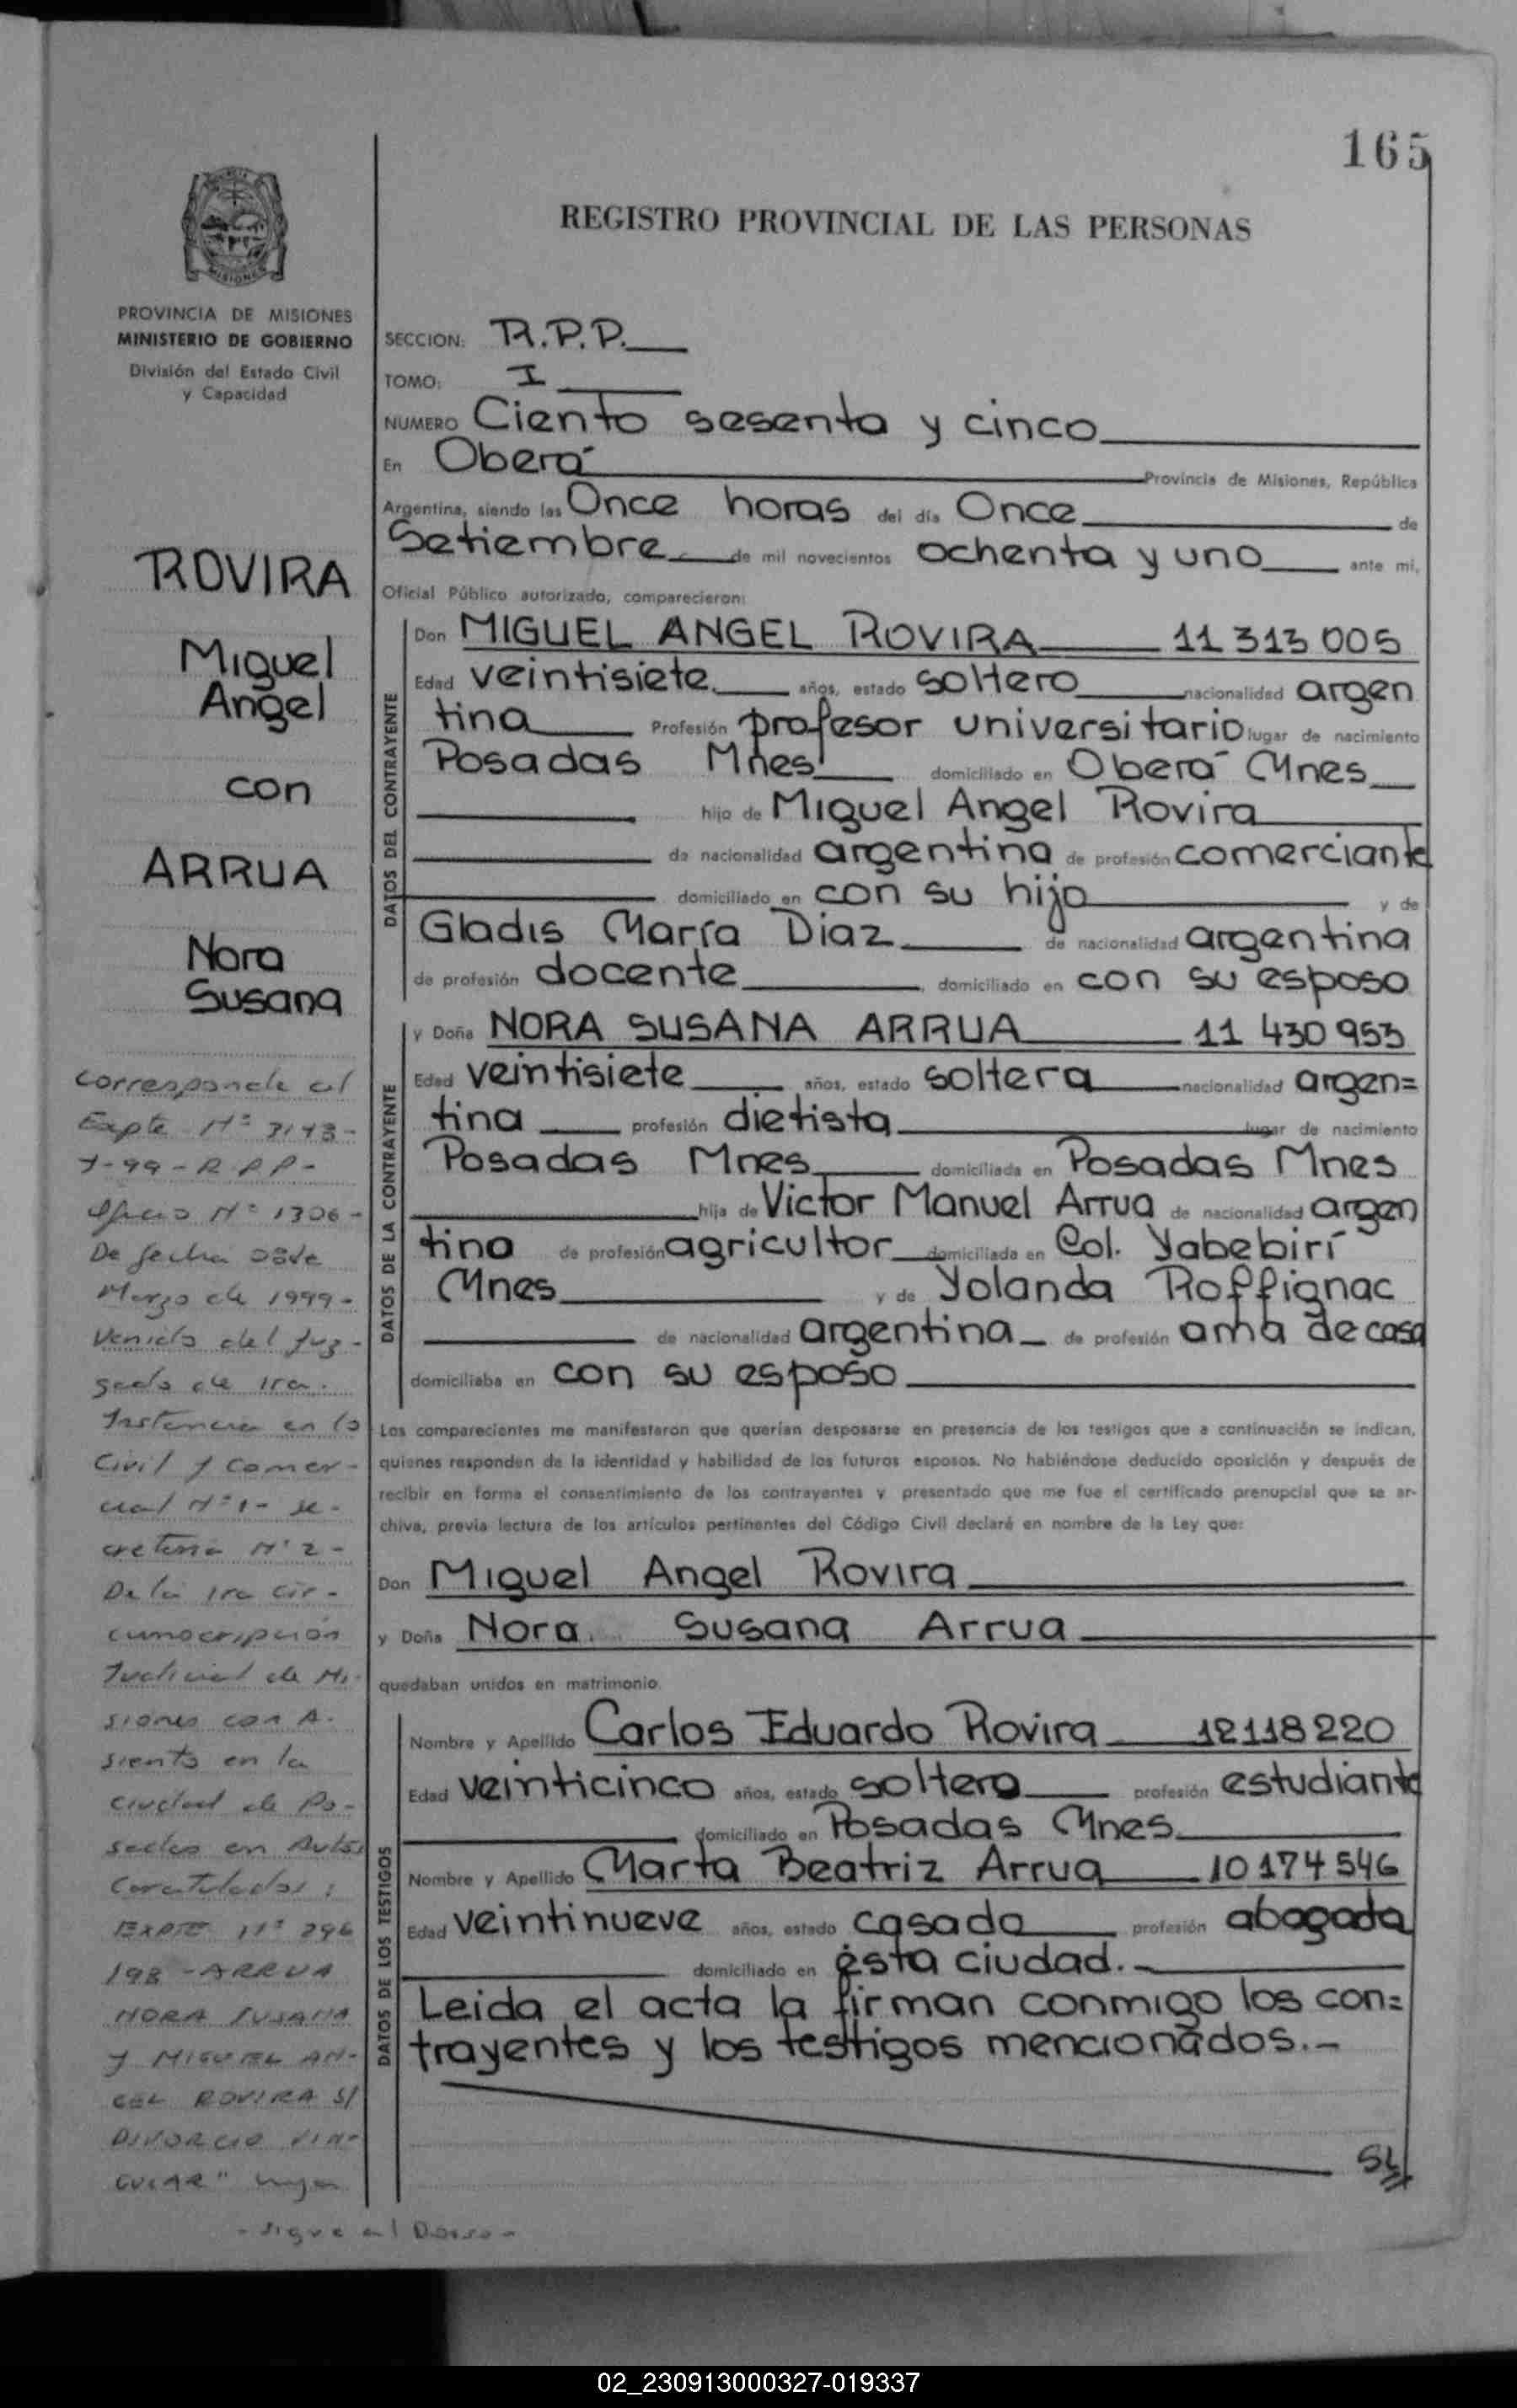 165
REGISTRO PROVINCIAL DE LAS PERSONAS
MISIONES
PROVINCIA DE MISIONES
MINISTERIO DE GOBIERNO
División del Estado Civil
y Capacidad
SECCION: R.P.P.
TOMO: I
NUMERO Ciento sesenta y cinco
En Oberá Provincia de Misiones, República
Argentina, siendo las Once horas del día Once de
Setiembre de mil novecientos ochenta y uno ante mi,
Oficial Público autorizado, comparecieron:
DATOS DEL CONTRAYENTE
Don MIGUEL ANGEL ROVIRA 11 313 005
Edad veintisiete años, estado soltero nacionalidad argen
tina Profesión profesor universitario lugar de nacimiento
Posadas Mnes domiciliado en Oberá Mnes
hijo de Miguel Angel Rovira
de nacionalidad argentina de profesión comerciante
domiciliado en con su hijo y de
Gladis María Diaz de nacionalidad argentina
de profesión docente domiciliado en con su esposo
DATOS DE LA CONTRAYENTE
y Doña NORA SUSANA ARRUA 11 430 953
Edad veintisiete años, estado soltera nacionalidad argen=
tina profesión dietista lugar de nacimiento
Posadas Mnes domiciliada en Posadas Mnes
hija de Victor Manuel Arrua de nacionalidad argen
tina de profesión agricultor domiciliada en Col. Yabebirí
Mnes y de Yolanda Roffignac
de nacionalidad argentina de profesión ama de casa
domiciliaba en con su esposo
Los comparecientes me manifestaron que querían desposarse en presencia de los testigos que a continuación se indican,
quienes responden de la identidad y habilidad de los futuros esposos. No habiéndose deducido oposición y después de
recibir en forma el consentimiento de los contrayentes y presentado que me fue el certificado prenupcial que se ar-
chiva, previa lectura de los artículos pertinentes del Código Civil declaré en nombre de la Ley que:
Don Miguel Angel Rovira
y Doña Nora Susana Arrua
quedaban unidos en matrimonio.
DATOS DE LOS TESTIGOS
Nombre y Apellido Carlos Eduardo Rovira 12118220
Edad veinticinco años, estado soltero profesión estudiante
domiciliado en Posadas Mnes
Nombre y Apellido Marta Beatriz Arrua 10174546
Edad veintinueve años, estado casada profesión abogada
domiciliado en ésta ciudad.
Leida el acta la firman conmigo los con=
trayentes y los testigos mencionados.-
ROVIRA
Miguel
Angel
con
ARRUA
Nora
Susana
corresponde al
Expte Nº 3143-
Y-99-R.P.P-
Oficio Nº 1306-
De fecha 03 de
Marzo de 1999-
Venido del Juz-
gado de 1ra.
Instancia en lo
Civil y Comer-
cial Nº 1- Se-
cretaria Nº 2-
De la 1ra Cir-
cunscripción
Judicial de Mi-
siones con A-
siento en la
ciudad de Po-
sadas en Autos
Caratulados:
EXPTE Nº 296
198 - ARRUA
NORA SUSANA
Y MIGUEL AN-
GEL ROVIRA S/
DIVORCIO VIN-
CULAR"
- Sigue al Dorso -
02_230913000327-019337